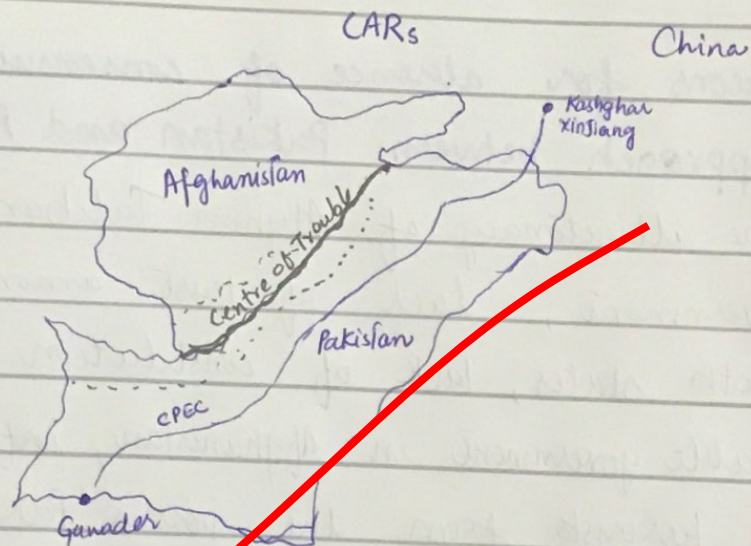 CARs
China
Kashghar
Xinjiang
Afghanistan
Centre of Trouble
Pakistan
CPEC
Gawader